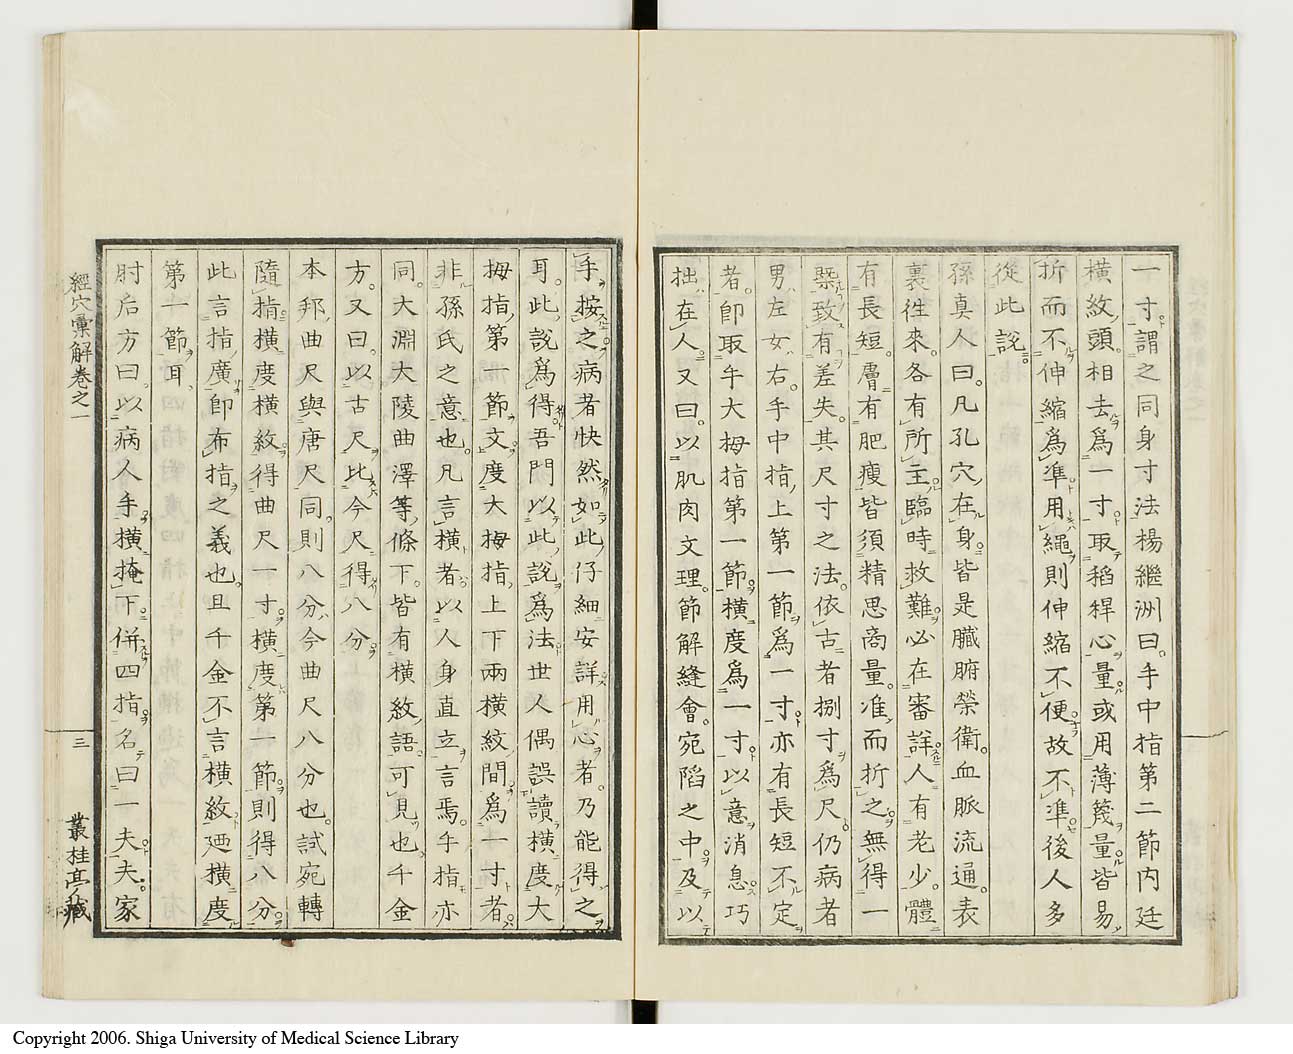 一寸謂之同身寸法楊繼洲曰手中指第二節内廷
横紋頭相去爲一寸取稻稈心量或用薄篾量皆易
折而不伸縮爲準用繩則伸縮不便故不準後人多
從此說
孫真人曰凡孔穴在身皆是臟腑榮衛血脈流通表
裏往來各有所主臨時救難必在審詳人有老少體
有長短膚有肥瘦皆須精思商量準而折之無得一
槩致有差失其尺寸之法依古者捌寸爲尺仍病者
男左女右手中指上第一節爲一寸亦有長短不定
者即取手大拇指第一節横度爲一寸以意消息巧
拙在人又曰以肌肉文理節解縫會宛陷之中及以
手按之病者快然如此仔細安詳用心者乃能得之
耳此說爲得吾門以此說爲法世人偶誤讀横度大
拇指第一節文度大拇指上下兩横紋間爲一寸者
非孫氏之意也凡言横者以人身直立言焉手指亦
同大淵大陵曲澤等條下皆有横紋語可見也千金
方又曰以古尺比今尺得八分
本邦曲尺與唐尺同則八分今曲尺八分也試宛轉
隨指横度横紋得曲尺一寸横度第一節則得八分
此言指廣即布指之義也且千金不言横紋廼横度
第一節耳
肘后方曰以病人手横掩下併四指名曰一夫夫家
經穴彙解卷之一
三
叢桂亭藏
Copyright 2006. Shiga University of Medical Science Library